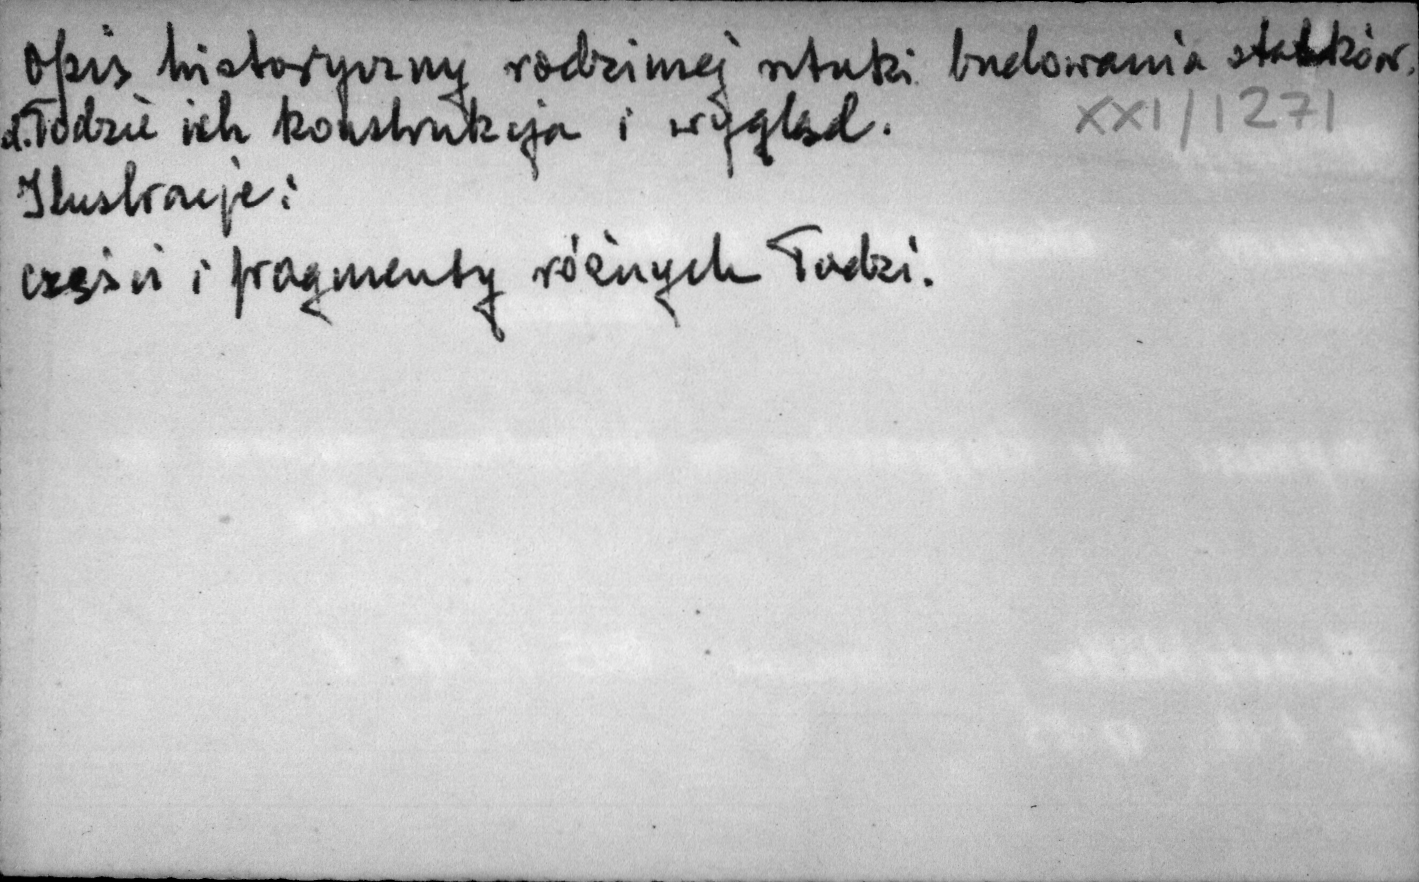 Opis historyczny rodzimej sztuki budowania statków.
Łodzie ich konstrukcja i wygląd.
XXI/1271
Ilustracje:
części i fragmenty różnych łodzi.